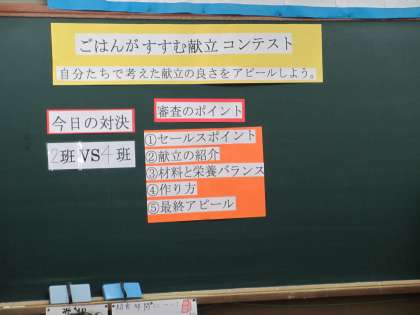 ごはんがすすむ献立コンテスト
自分たちで考えた献立の良さをアピールしよう。
審査のポイント
今日の対決
2班VS4班
①セールスポイント
②献立の紹介
③材料と栄養バランス
④作り方
⑤最終アピール